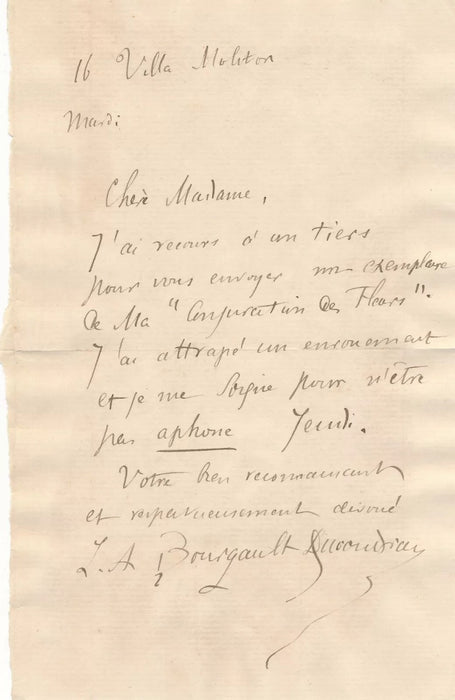 16 Villa Molitor
Mardi
Chère Madame,
J'ai recours à un tiers
pour vous envoyer un exemplaire
de Ma "Conjuration des Fleurs".
J'ai attrapé un enrouement
et je me soigne pour n'être
pas aphone Jeudi.
Votre bien reconnaissant
et respectueusement dévoué
L. A Bourgault Ducoudray